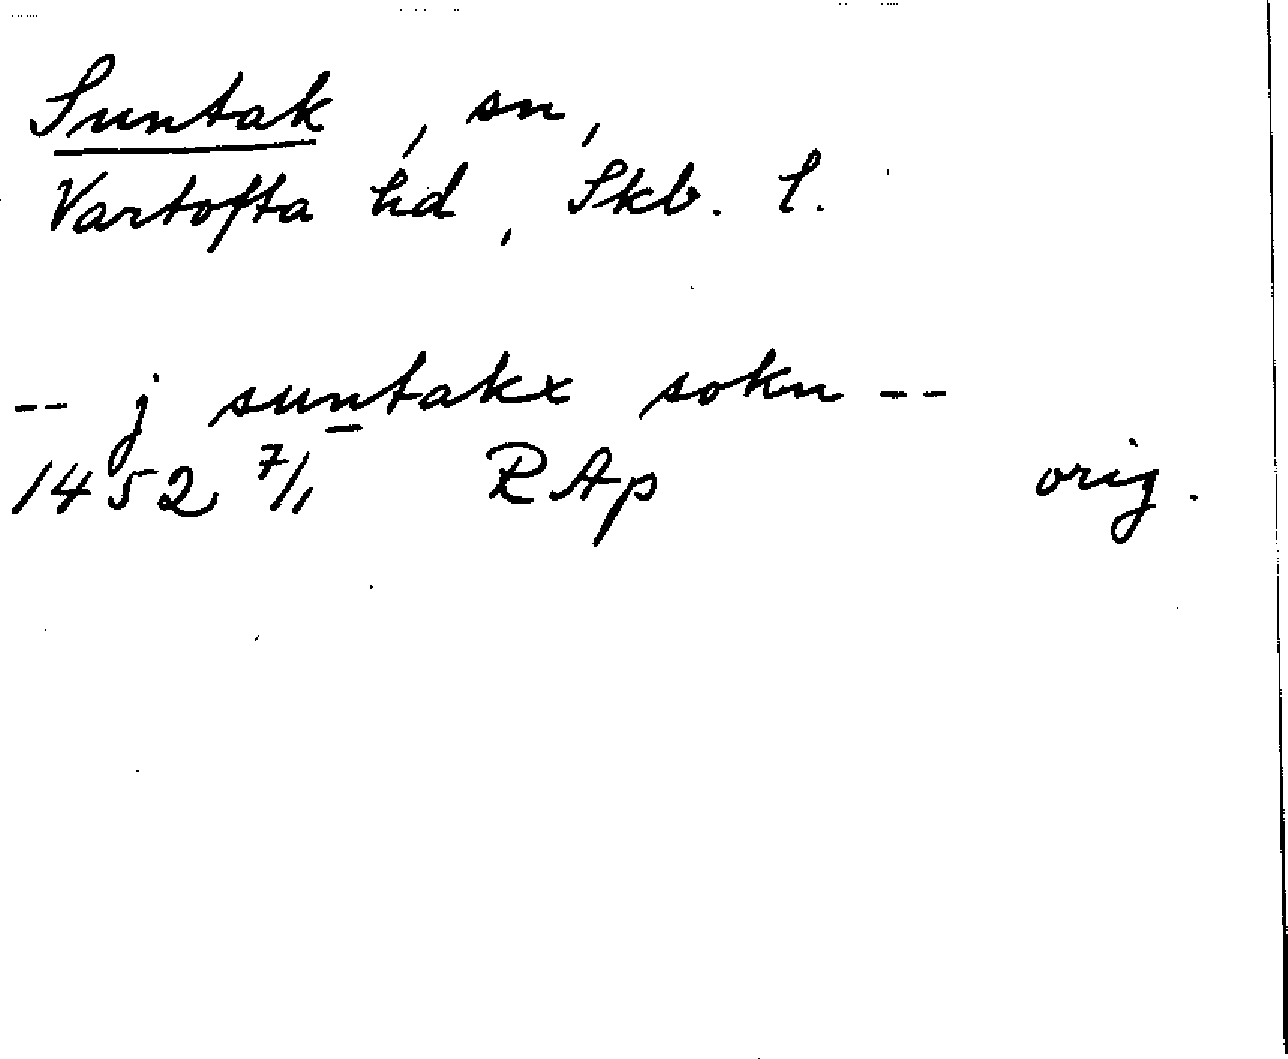 Suntak, sn,
Vartofta hd, Skb. l.
-- j suntakx sokn --
1452 7/1 RAp orig.